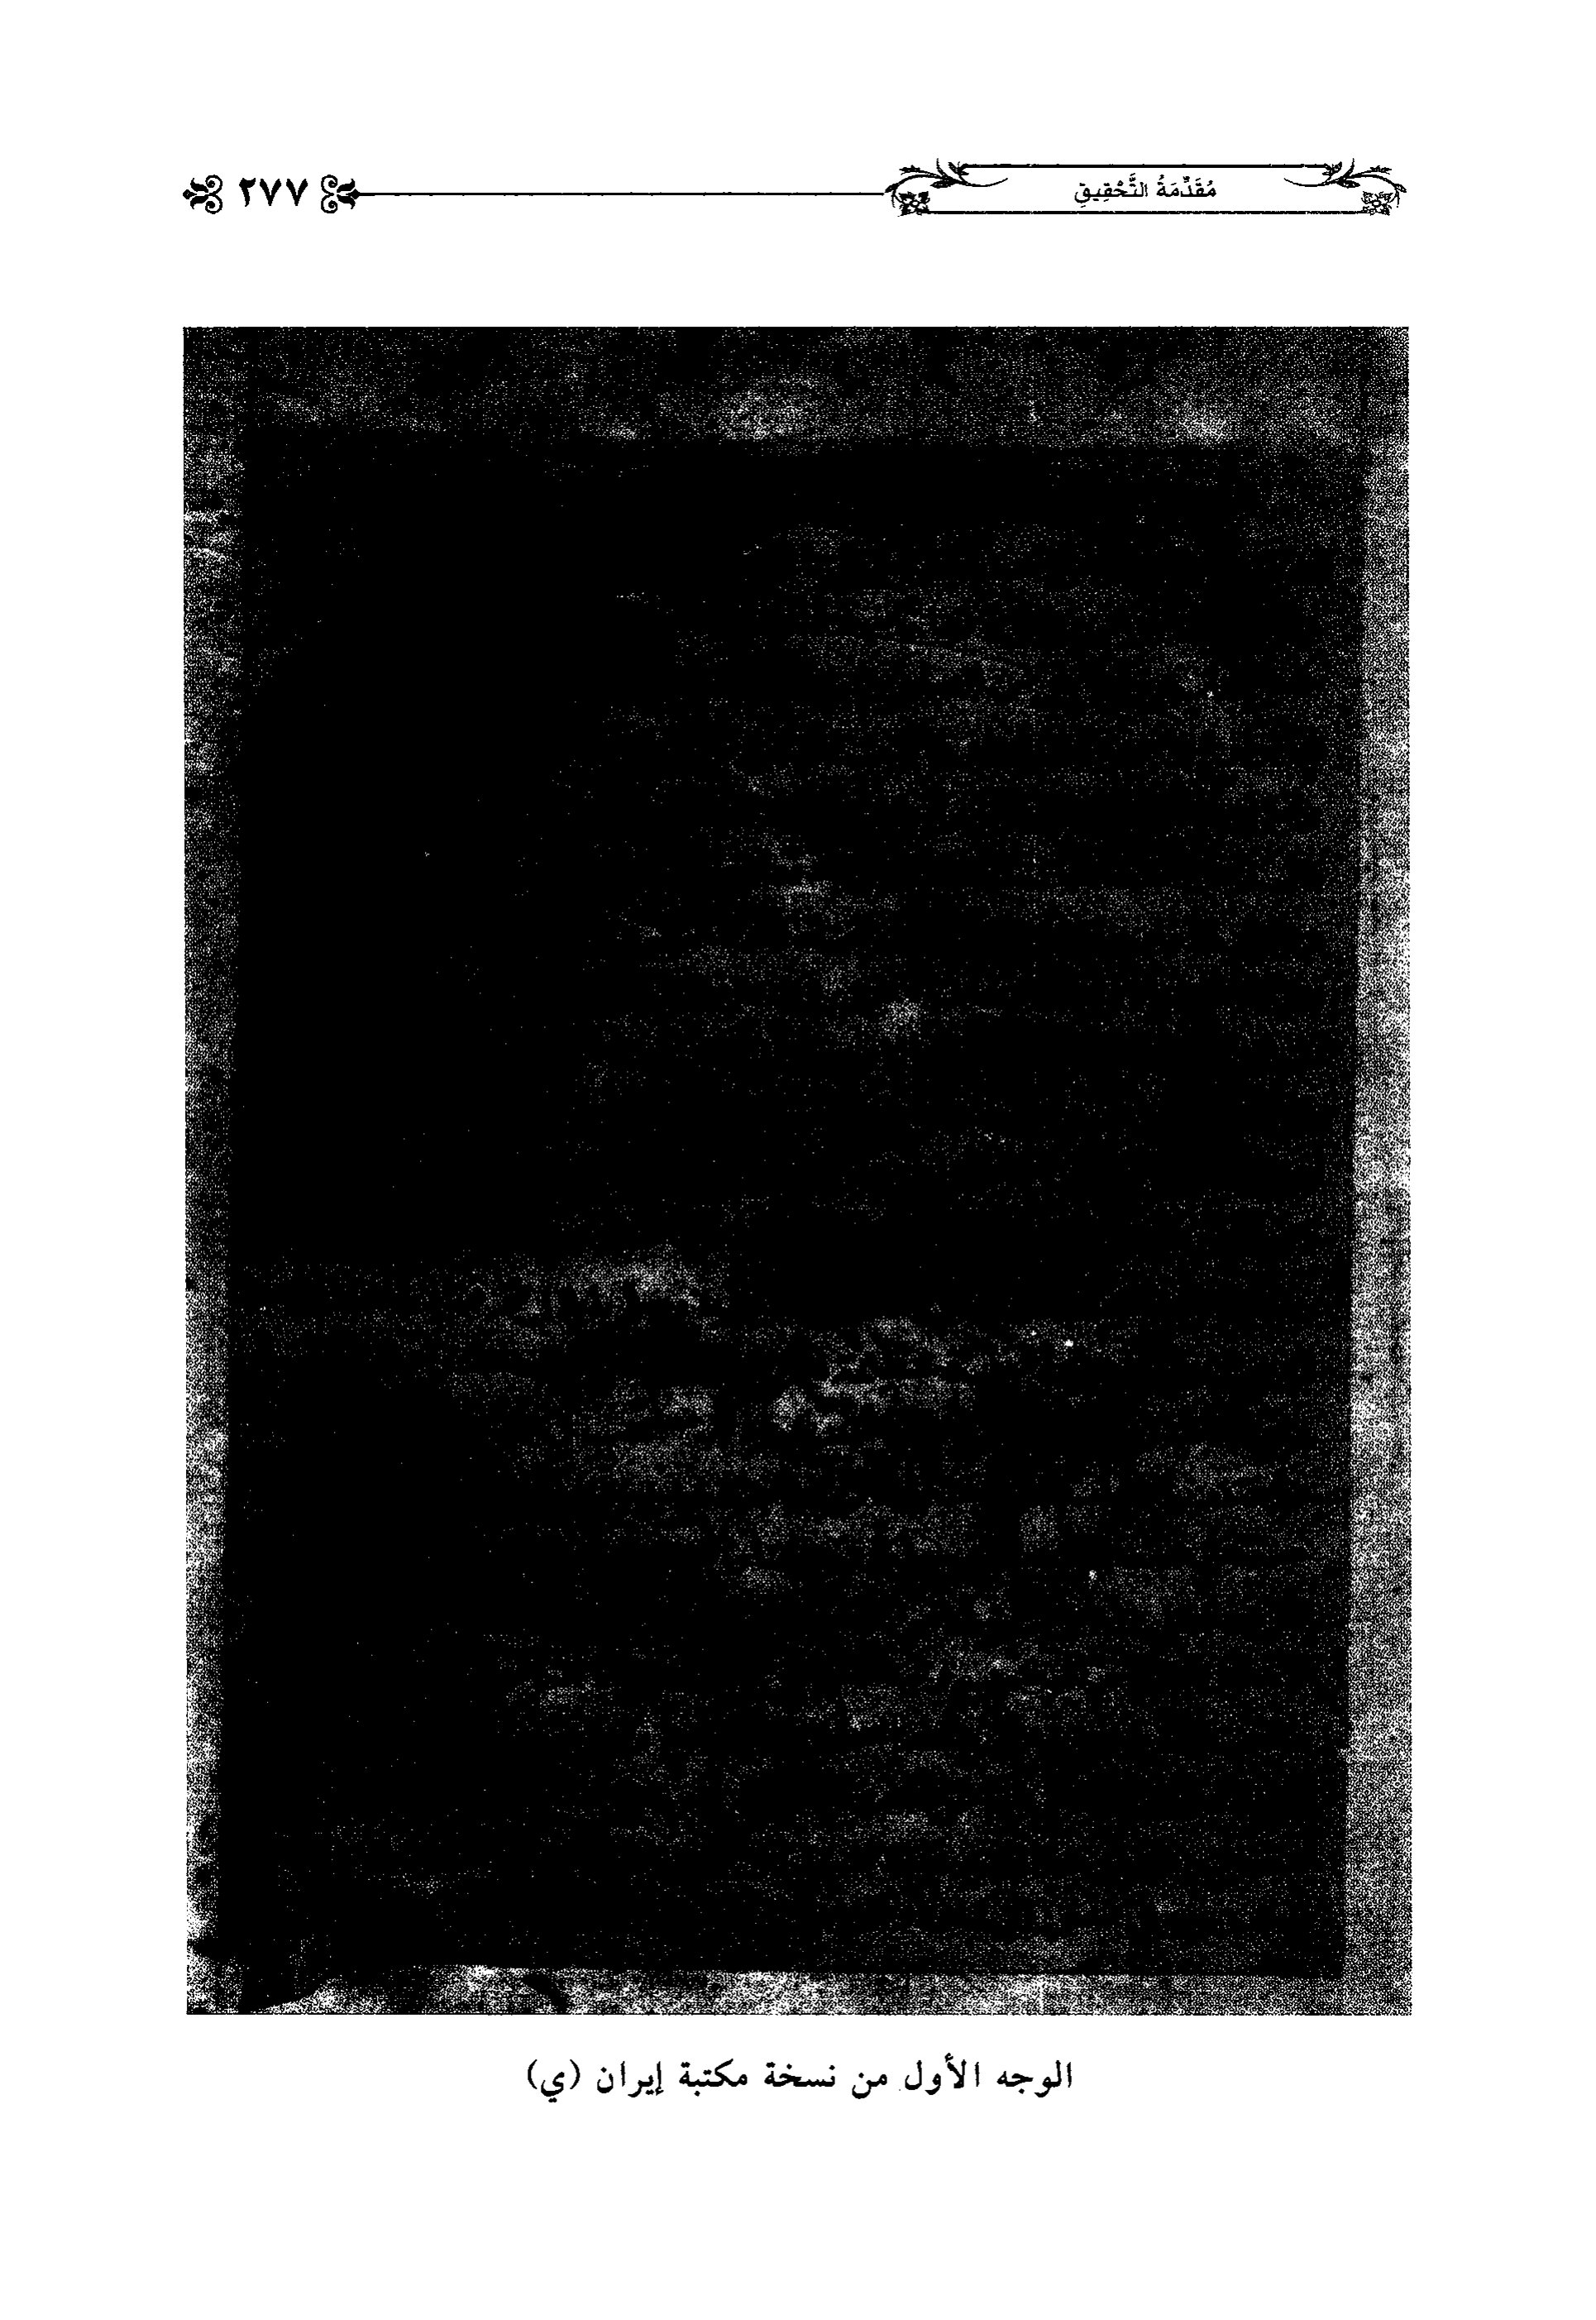 مُقَدِّمَةُ التَّحْقِيقِ
٢٧٧
الوجه الأول من نسخة مكتبة إيران (ي)